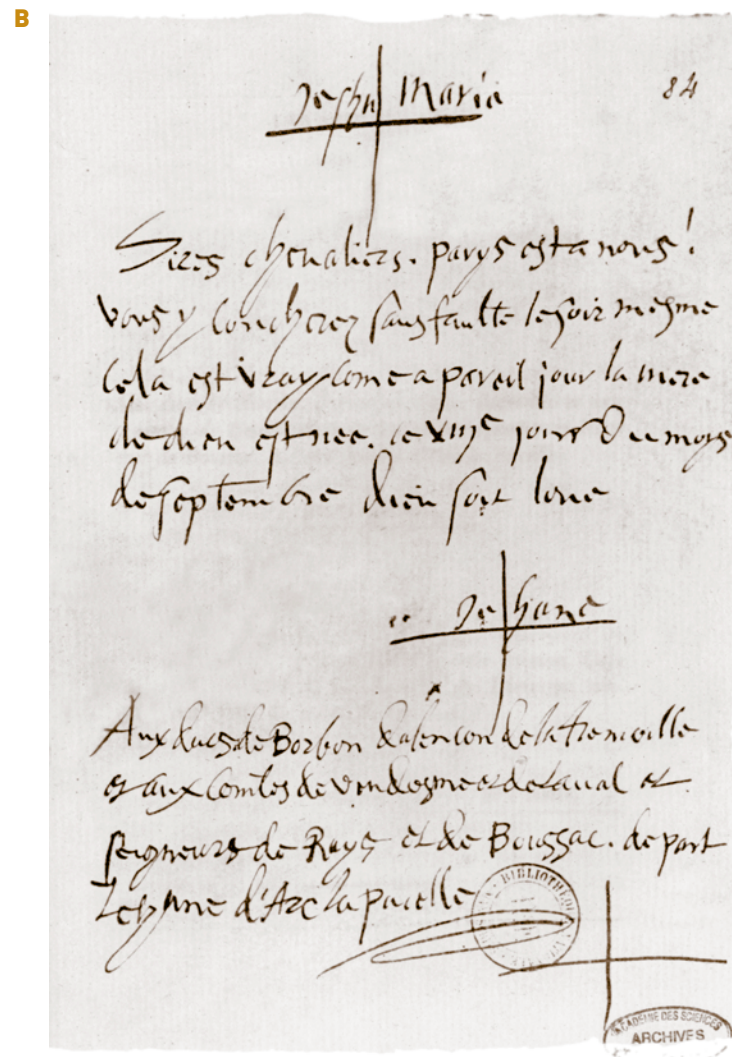 B
Jeshu Maria
84
Sires chevaliers. parys est a nous!
vous y coucherez sans faulte le soir mesme
Cela est vray come a pareil jour la mere
de dieu est nee. ce VIIIe jour du moys
de septembre dieu soit loue
Jehane
Aux ducs de Borbon dalencon de la tremoille
et aux Comtes de vendosme et de Laval et
seigneurs de Rays et de Boussac. de part
Jehanne d'Arc la pucelle
BIBLIOTHE
ACADEMIE DES SCIENCES
ARCHIVES